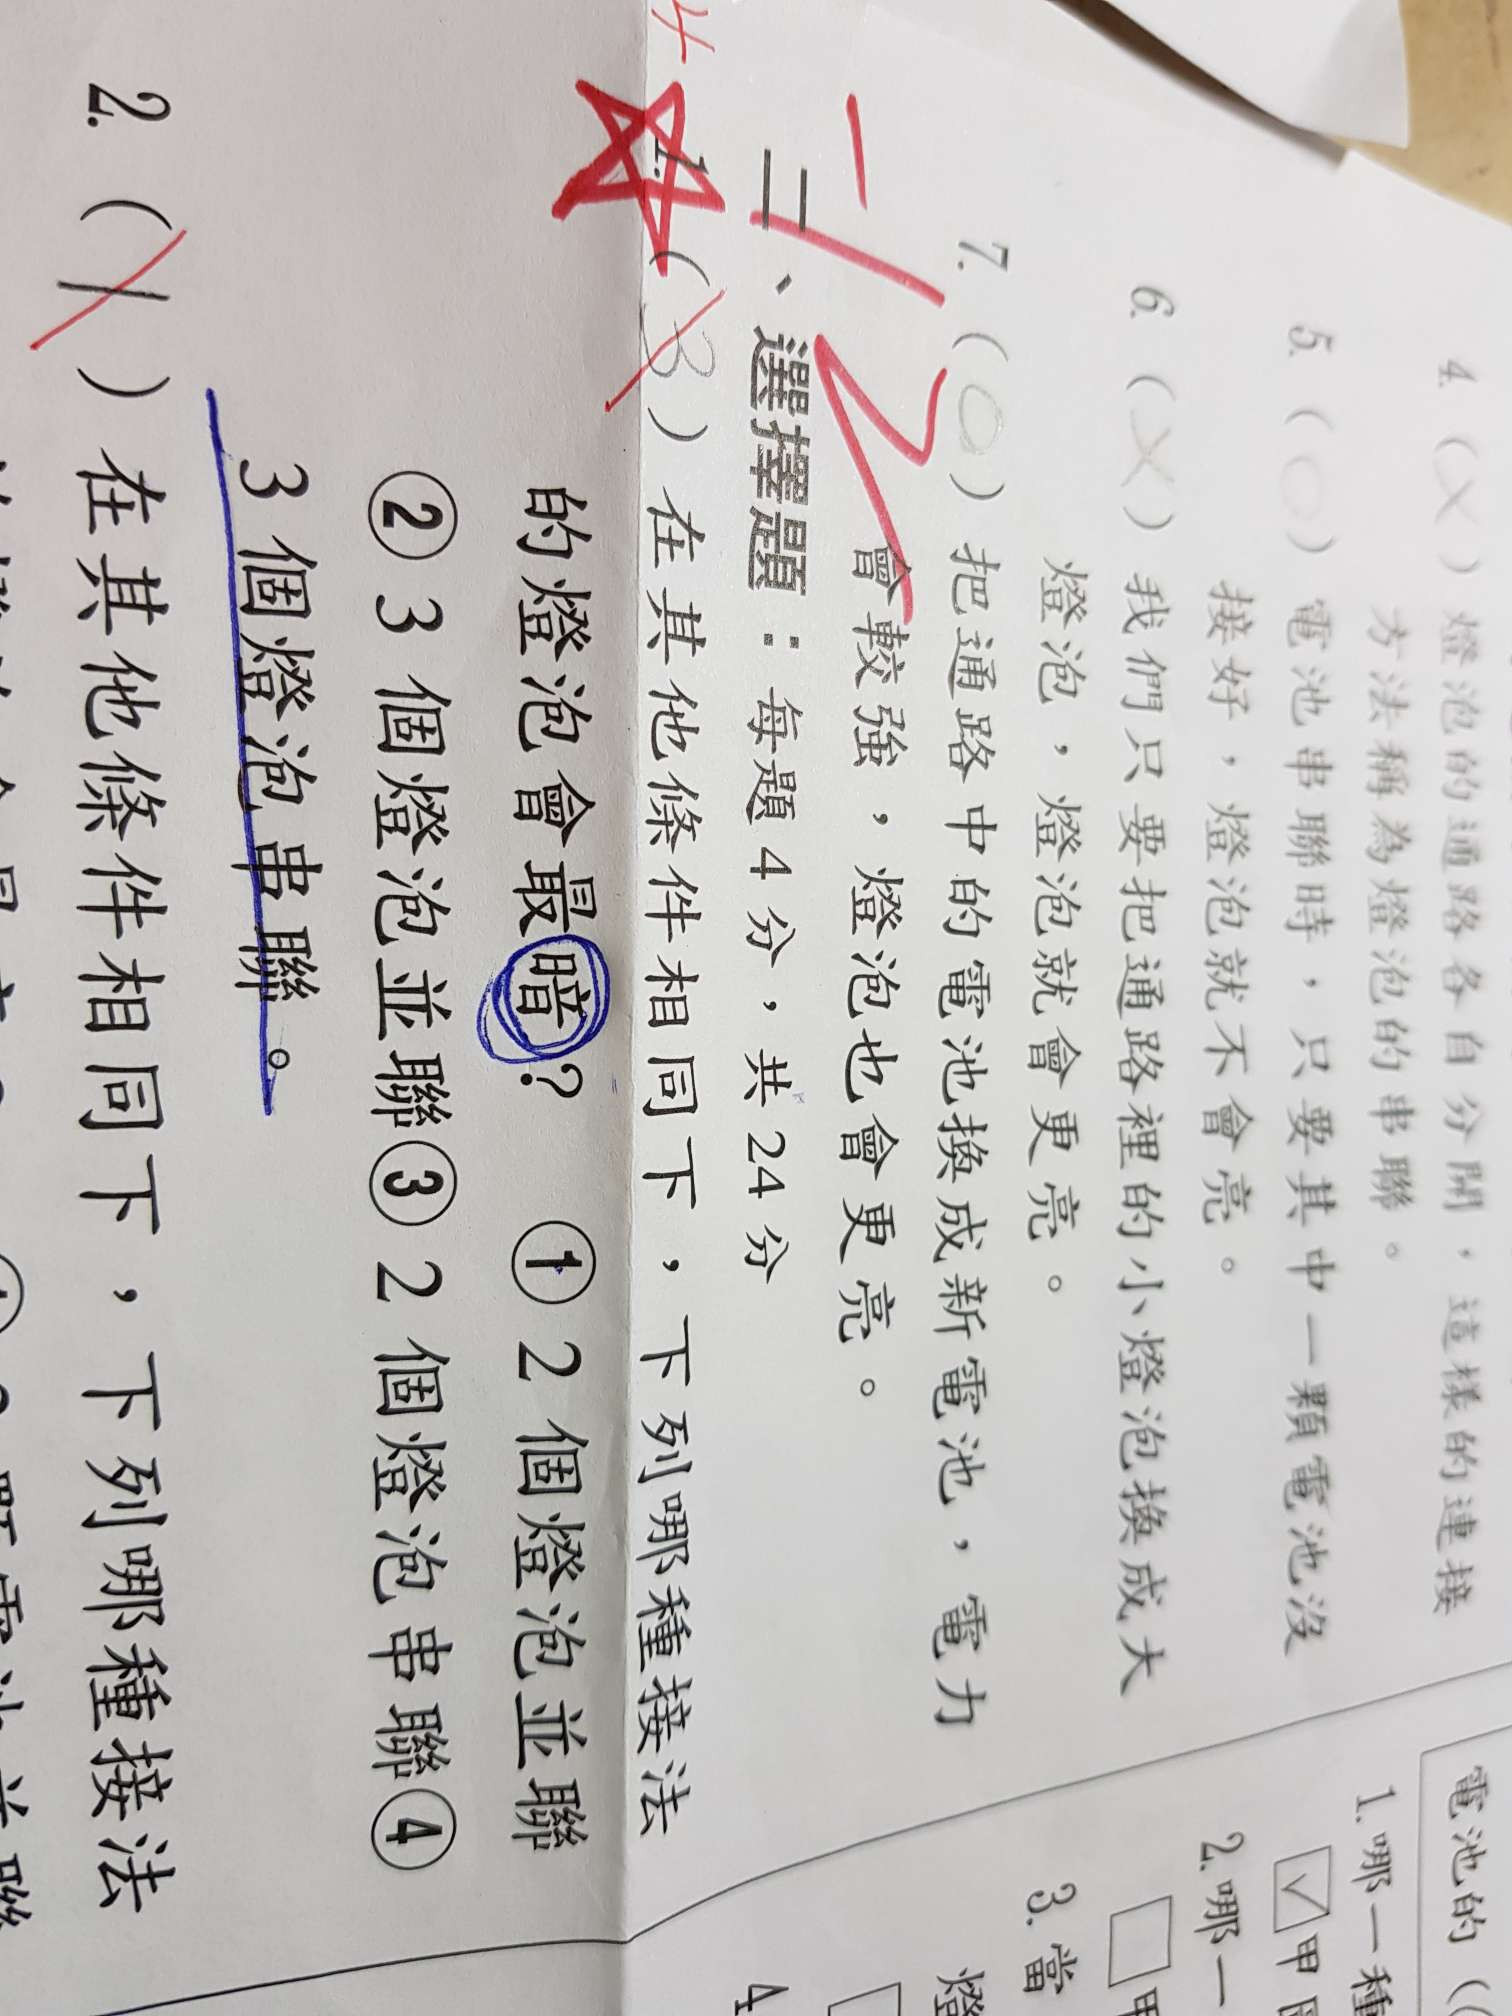 4. (X) 燈泡的通路各自分開，這樣的連接
方法稱為燈泡的串聯。
5. (○) 電池串聯時，只要其中一顆電池沒
接好，燈泡就不會亮。
6. (X) 我們只要把通路裡的小燈泡換成大
燈泡，燈泡就會更亮。
7. (○) 把通路中的電池換成新電池，電力
會較強，燈泡也會更亮。
-12
二、選擇題：每題4分，共24分
1. (3) 在其他條件相同下，下列哪種接法
的燈泡會最暗？ ①2個燈泡並聯
②3個燈泡並聯③2個燈泡串聯④
3個燈泡串聯。
2. (1) 在其他條件相同下，下列哪種接法
電池的
1.哪一種
✓甲
2.哪一
3.當
4